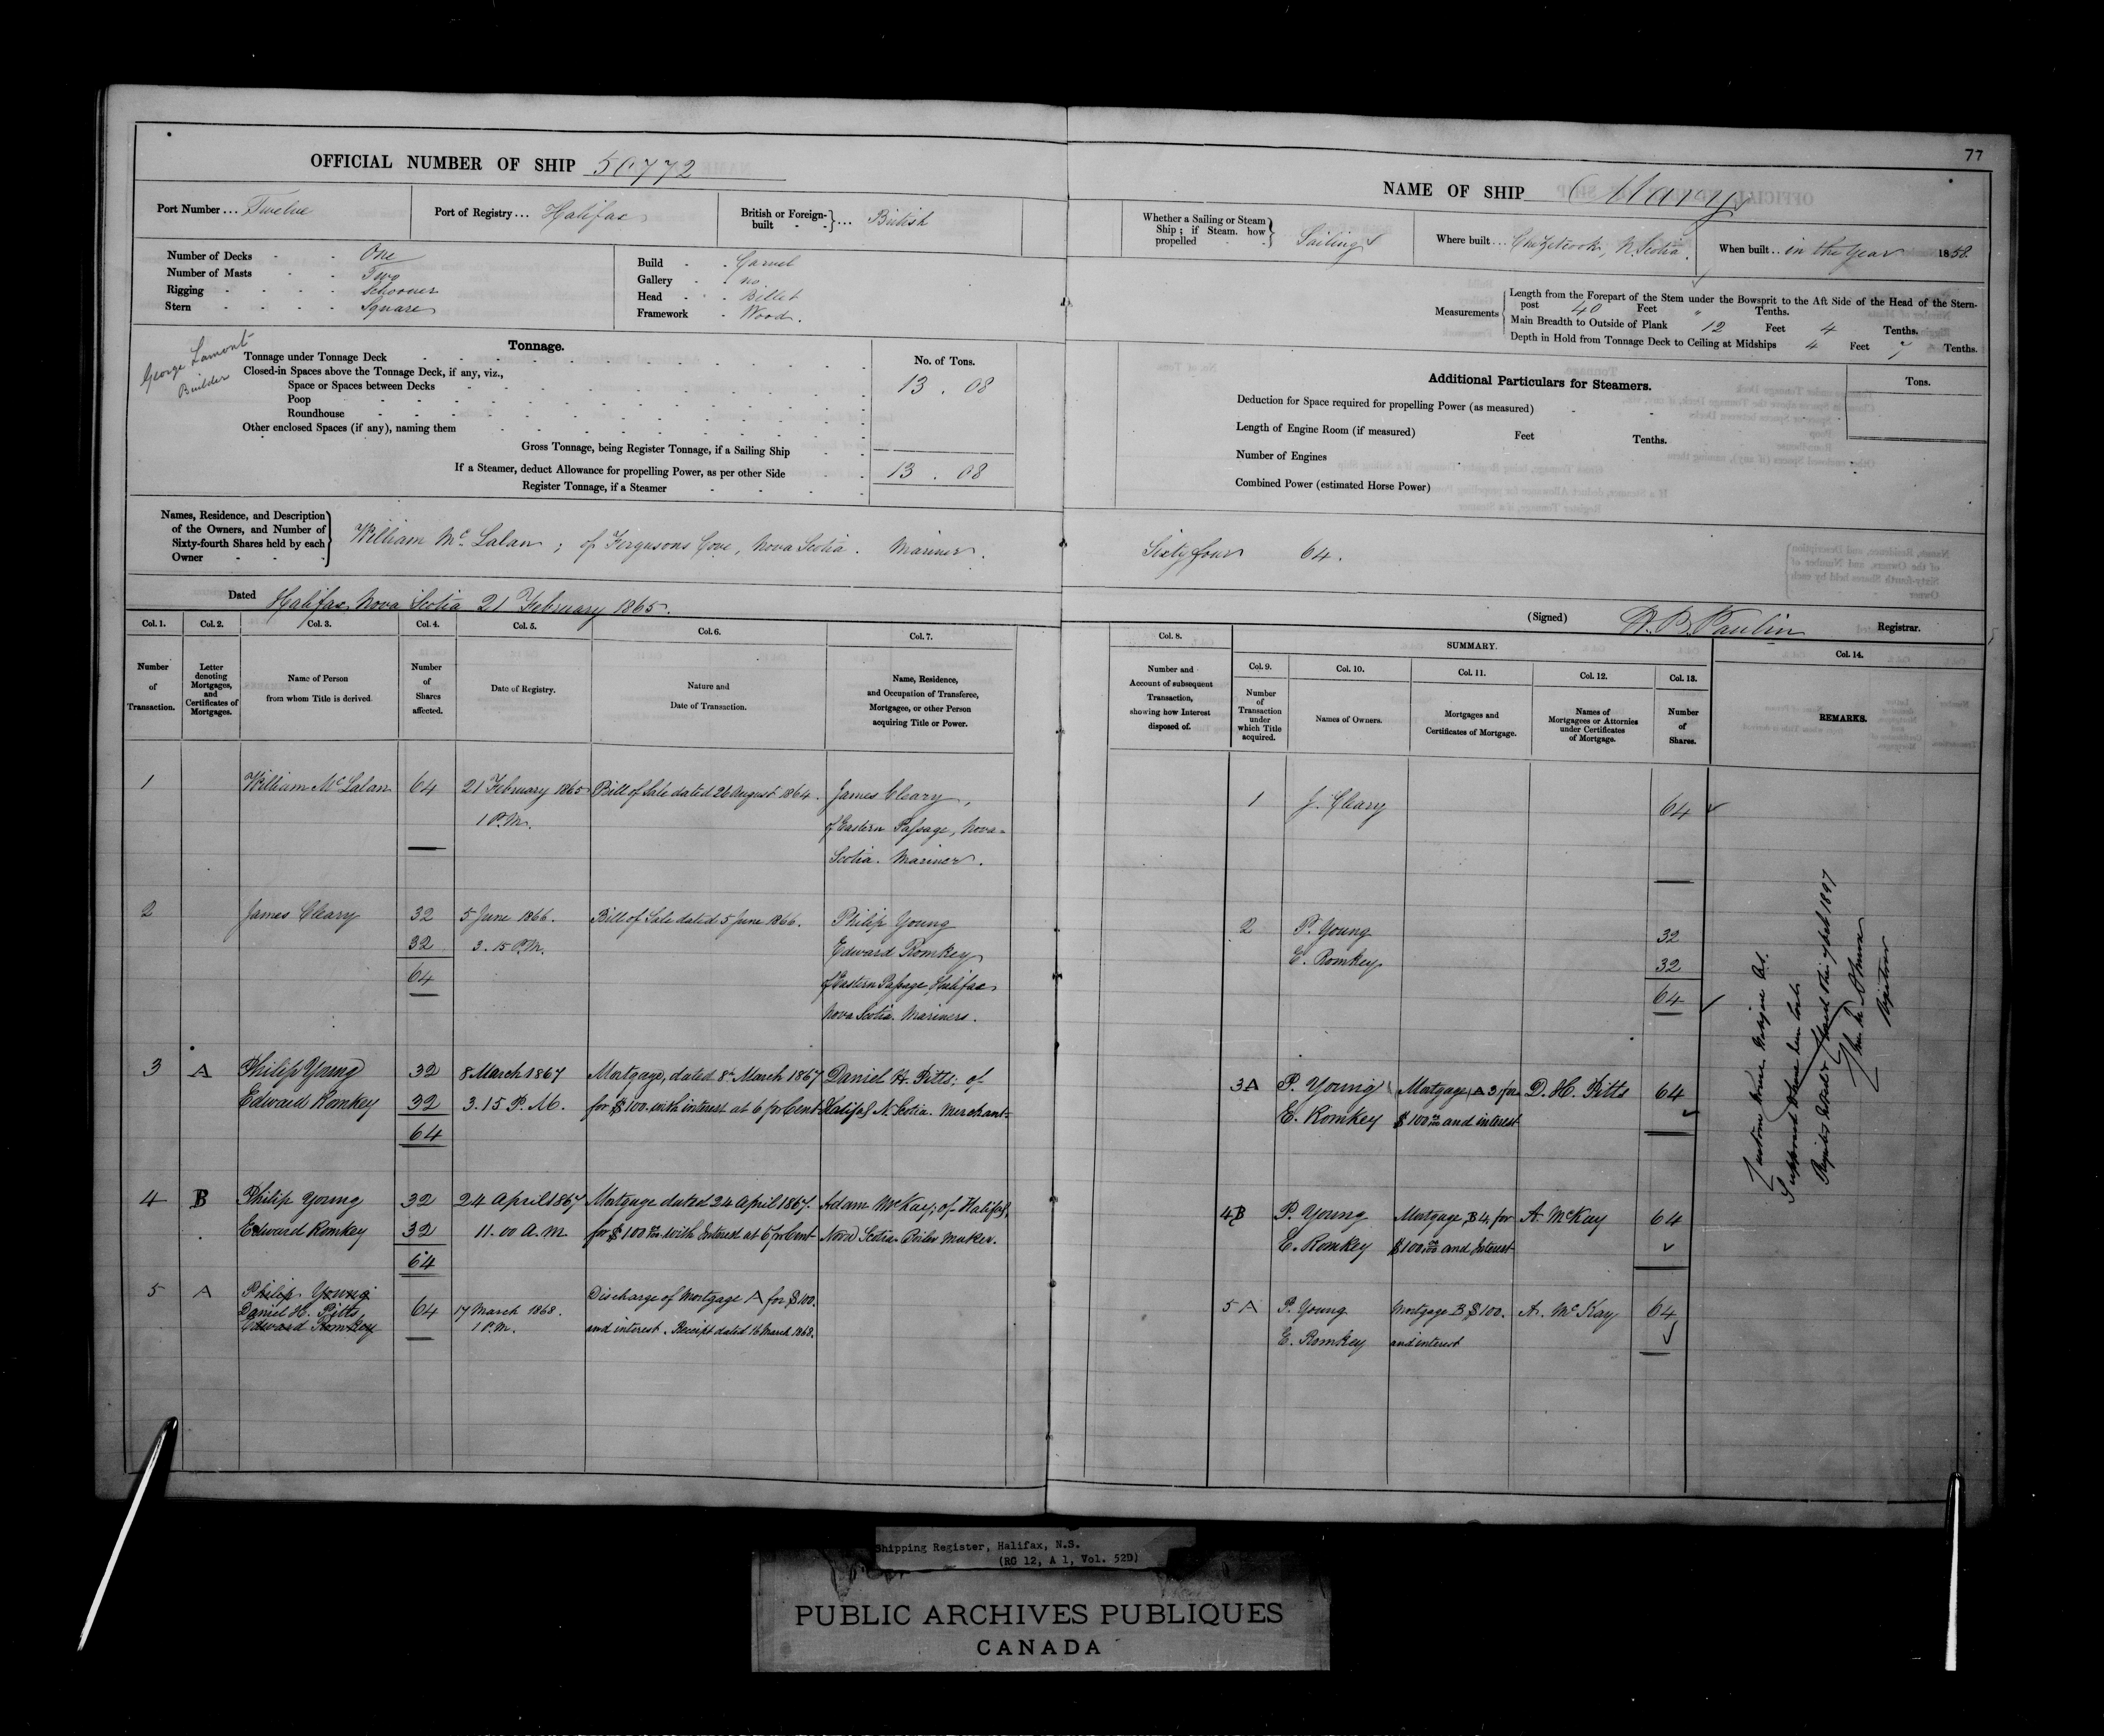 77
OFFICIAL NUMBER OF SHIP 50772
NAME OF SHIP Mary
Port Number... Twelve
Port of Registry... Halifax
British or Foreign-built - - }... British
Whether a Sailing or Steam Ship; if Steam. how propelled - } Sailing
Where built... Chezzetcook, N. Scotia.
When built... in the Year 1858.
Number of Decks - - One
Number of Masts - - Two
Rigging - - - - Schooner
Stern - - - - Square
Build - - Carvel
Gallery - - no
Head - - Billet
Framework - Wood.
Measurements
Length from the Forepart of the Stem under the Bowsprit to the Aft Side of the Head of the Stern-
post 40 Feet " Tenths.
Main Breadth to Outside of Plank 12 Feet 4 Tenths.
Depth in Hold from Tonnage Deck to Ceiling at Midships 4 Feet 7 Tenths.
George Lamont
Builder
Tonnage.
No. of Tons.
Tonnage under Tonnage Deck
Closed-in Spaces above the Tonnage Deck, if any, viz.,
Space or Spaces between Decks 13 . 08
Poop
Roundhouse
Other enclosed Spaces (if any), naming them
Gross Tonnage, being Register Tonnage, if a Sailing Ship
If a Steamer, deduct Allowance for propelling Power, as per other Side 13 . 08
Register Tonnage, if a Steamer
Additional Particulars for Steamers.
Tons.
Deduction for Space required for propelling Power (as measured)
Length of Engine Room (if measured) Feet Tenths.
Number of Engines
Combined Power (estimated Horse Power)
Names, Residence, and Description
of the Owners, and Number of
Sixty-fourth Shares held by each
Owner
William Mc Lalan; of Fergusons Cove, Nova Scotia. Mariner. Sixty four 64.
Dated Halifax, Nova Scotia 21 February 1865.
(Signed) Paulin Registrar.
Col. 1. Col. 2. Col. 3. Col. 4. Col. 5. Col. 6. Col. 7.
Number of Transaction.
Letter denoting Mortgages, and Certificates of Mortgages.
Name of Person from whom Title is derived
Number of Shares affected.
Date of Registry.
Nature and Date of Transaction.
Name, Residence, and Occupation of Transferee, Mortgagee, or other Person acquiring Title or Power.
Col. 8.
Number and Account of subsequent Transaction, showing how Interest disposed of.
SUMMARY.
Col. 9. Col. 10. Col. 11. Col. 12. Col. 13. Col. 14.
Number of Transaction under which Title acquired.
Names of Owners.
Mortgages and Certificates of Mortgage.
Names of Mortgagees or Attornies under Certificates of Mortgage.
Number of Shares.
REMARKS.
1 William Mc Lalan 64 21 February 1865 Bill of Sale dated 26 August 1864. James Cleary,
1 P.M. of Eastern Passage, Nova-
Scotia. Mariner.
1 J. Cleary 64
2 James Cleary 32 5 June 1866. Bill of Sale dated 5 June 1866. Philip Young
32 3.15 P.M. Edward Romkey
64 of Eastern Passage, Halifax
Nova Scotia. Mariners.
2 P. Young 32
E. Romkey 32
64
3 A Philip Young 32 8 March 1867 Mortgage, dated 8th March 1867 Daniel H. Pitts: of
Edward Romkey 32 3.15 P.M. for $100. with interest at 6 per Cent Halifax N. Scotia. Merchant
64
3A P. Young Mortgage A 3 for D. H. Pitts 64
E. Romkey $100 and interest
4 B Philip Young 32 24 April 1867 Mortgage dated 24 April 1867. Adam McKay; of Halifax,
Edward Romkey 32 11.00 A.M. for $100 with Interest at 6 per Cent Nova Scotia Boiler Maker.
64
4B P. Young Mortgage B 4 for A. McKay 64
E. Romkey $100 and Interest
5 A Philip Young
Daniel H. Pitts 64 17 March 1868. Discharge of Mortgage A for $100.
Edward Romkey 1 P.M. and interest. Receipt dated 16 March 1868.
5 A P. Young Mortgage B $100. A. McKay 64
E. Romkey and interest
Supposed to have been lost
Registrar
Shipping Register, Halifax, N.S.
(RG 12, A 1, Vol. 52D)
PUBLIC ARCHIVES PUBLIQUES
CANADA